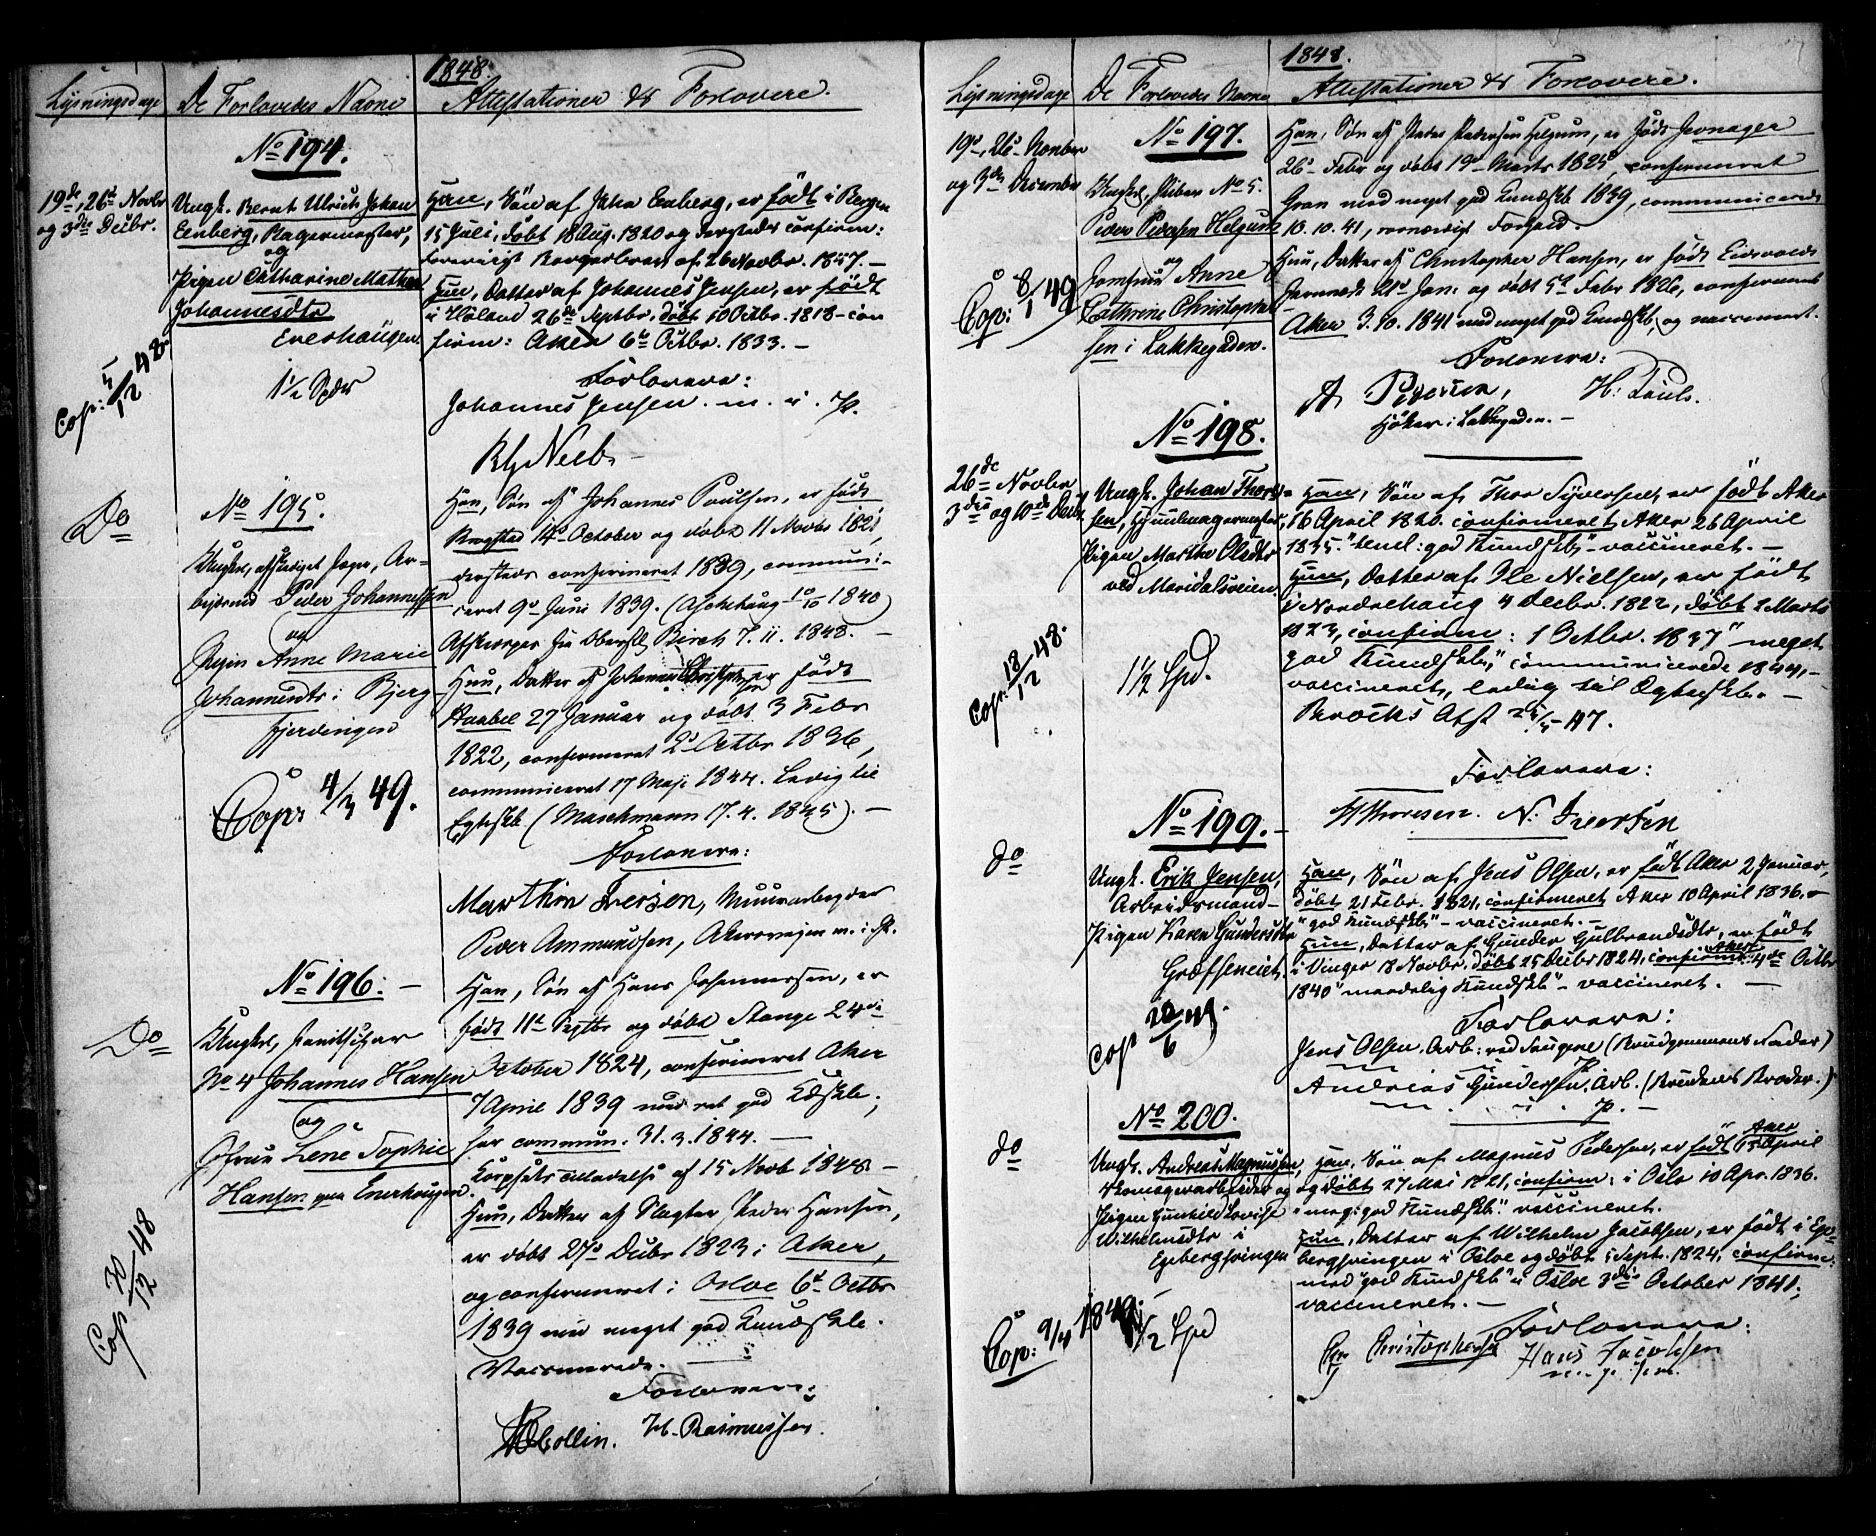 1848.
Lysningsdage De Forlovedes Navne Attestationer & Forlovere.
No 194.
19de, 26de Novbr
og 3die Decbr.
Ungk. Bernt Ulrich Johan
Enberg, Bagermester,
og
Pigen Catharine Mathea
Johannesdtr
Enerhaugen
1 1/2 Spdr
Cop: 5/12 48
Han, Søn af Enberg, er født i Bergen
15 Juli, døbt 18 Aug. 1820 og dersteds confirm:
foreviist Borgerbrev af 26 Novbr. 1847. –
Hun, Datter af Johannes Jensen, er født
i Høland 26de Septbr, døbt 10 Octbr. 1818 – con
firm: Aker 6te Octbr. 1833. –
Forlovere:
Johannes Jensen. m. i. P.
No 195.
Do
Ungkl, afskediget Jæger, Ar-
beidsmd Peder Johannessen
og
Pigen Anne Marie
Johannesdtr i Bjerg-
fjerdingen
Cop: 4/3 49.
Han, Søn af Johannes Poulsen, er født
14de October og døbt 11 Novbr 1821,
dersteds confirmeret 1839, communi-
ceret 9de Juni 1839. (10/10 1840)
Oberstl Birch 7. 11. 1848. –
Hun, Datter af Johannes Christophersen er født
27 Januar og døbt 3 Febr
1822, confirmeret 2 Octbr 1836,
communiceret 17 Maji 1844. Ledig til
Egtesk. (Maschmann 17. 4. 1845). –
Forlovere:
Marthin Iversen, Muurarbeyder
Peder Ammundsen, Akersvejen m. i. P.
No 196. –
Do
Ungkl,
No 4 Johannes Hansen
og
Lene Sophie
Hansen paa Enerhaugen
Cop 30/12 48
Han, Søn af Hans Johannessen, er
født 11te Septbr og døbt Stange 24de
October 1824, confirmeret Aker
7 April 1839 med ret god Kdskb,
har commun. 31. 3. 1844. –
Korpsets tilladelse af 15 Novb 1848 –
Hun, Datter af Slagter Peder Hansen,
er døbt 27de Decbr 1823 i Aker,
og confirmeret i Osloe 6te Octbr
1839 med meget god Kundskb.
Vaccinerede. –
Forlovere:
H. Rasmussen.
1848.
Lysningsdage De Forlovedes Navne Attestationer & Forlovere.
No 197.
19de, 26de Novber
og 3die December
Ungkl, No 5.
Peder Pedersen Helgum
og
Jomfrue Anne
Cathrine Christopher
sen i Lakkegaden.
Cop: 8/1 49
Han, Søn af Peder Pedersen Helgum, er født Jevnager
26de Febr og døbt 19de Marts 1825, confirmeret
Gran med meget god Kundskb 1839, communicerede
10. 10. 41, Forhold.
Hun, Datter af Christopher Hansen, er født Eidsvolds
21de Jan: og døbt 5te Febr 1826, confirmeret
Aker 3. 10. 1841 med meget god Kundskb, og vaccineret.
Forlovere:
A Pedersen,
Høker i Lakkegaden. –
No 198.
26de Novbr
3die og 10de Decbr.
Ungk. Johan Thor-
sen, Hjuulmagermester,
Pigen Marthe Olsdtr
ved Maridalsveien.
1 1/2 Spd.
Cop. 18/12 48.
Han, Søn af Thor Syversen, er født Aker
16 April 1820. confirmeret Aker 26 April
1835. "temel: god Kundskb" – vaccineret. –
Hun, Datter af Ole Nielsen, er født
i Nordrehaug 4 Decbr. 1822, døbt 2 Marts
1823, confirm: 1 Octbr. 1837 "meget
god Kundskb," communicerede 1844, –
vaccineret, ledig til Egteskb. –
Brocks Att 47.
Forlovere:
No 199. –
do
Ungk. Erik Jensen,
Arbeidsmand –
Pigen Karen Gundersdtr
Græfseneiet.
Cop 49
Han, Søn af Jens Olsen, er født Aker 2 Januar,
døbt 21 Febr. 1821, confirmeret Aker 10 April 1836. –
"god Kundskb" – vaccineret. –
Hun, Datter af Gunder Gulbrandsdtr, er født
i Vinger 18 Novbr, døbt 25 Decbr 1824, confirm: Aker 4de Octbr
1840 "maadelig Kundskb" – vaccineret. –
Forlovere:
Jens Olsen, Arb: ved Saugene (Brudgommens Fader)
Andreas Gundersen, Arb. (Brudens Broder.)
m. i. P. –
No 200.
do
Ungk. Andreas Magnussen,
Skomagerarbeider og
Pigen Gunhild Lovise
Wilhelmsdtr i
Egebergsvingen
1 1/2 Spd
Cop: 9/4 1849. –
Han, Søn af Magnus Pedersen, er født Aker April
og døbt 27 Mai 1821, confirm: i Oslo 10 Apr. 1836.
"meg: god Kundskb" vaccineret.
Hun, Datter af Wilhelm Jacobsen, er født i Ege-
bergsvingen i Osloe og døbt Sept. 1824, confirm:
med "god Kundskb" i Osloe 3die October 1841;
vaccineret. –
Forlovere:
Christophersen Hans Jacobsen